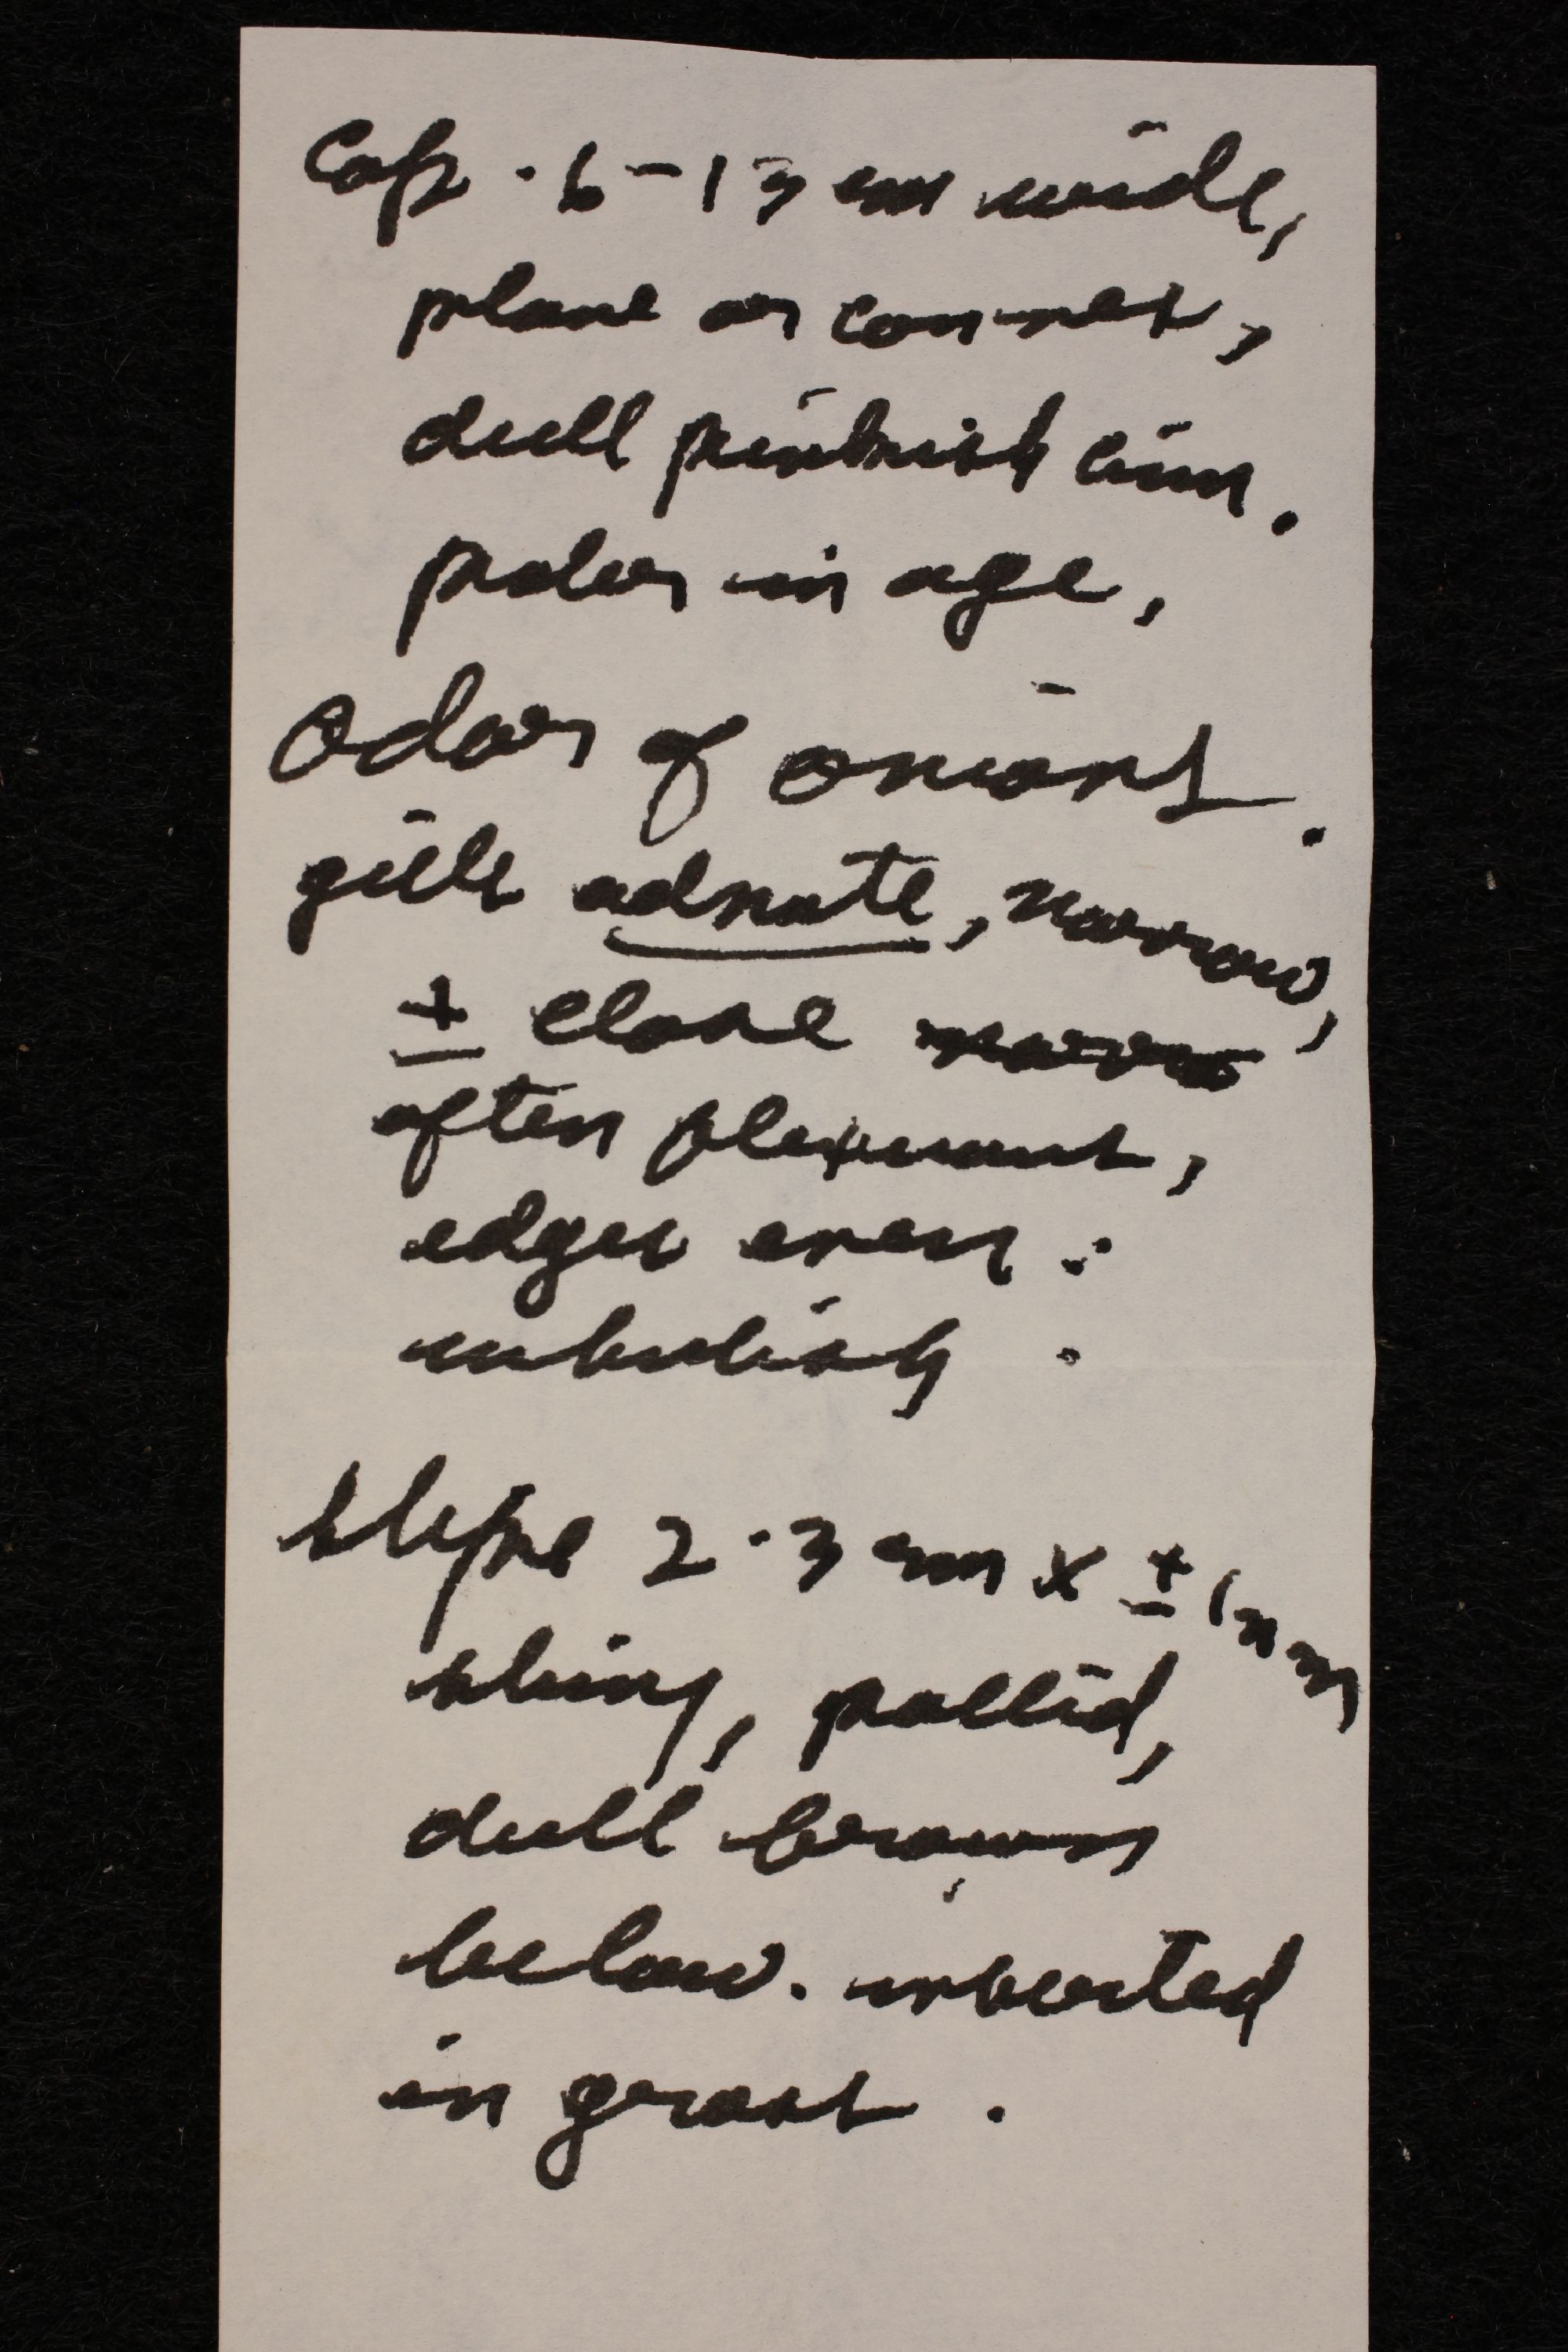 Cap .6-13 cm wide,
plane or convex,
dull pinkish cinn.
paler in age,
Odor of onions.
gills adnate, narrow,
± close
often flexuous,
edges even.
subulish.
stipe 2-3 cm x ± 1mm
shiny, pallid,
dull brown
below. inserted
in grass.